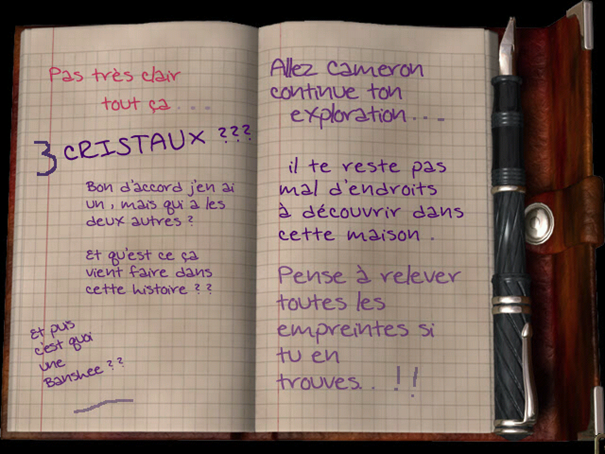 Pas très clair
tout ça...
3 CRISTAUX ???
Bon d'accord j'en ai
un, mais qui a les
deux autres ?
Et qu'est ce ça
vient faire dans
cette histoire ??
Et puis
c'est quoi
une
Banshee ??
Allez Cameron
continue ton
exploration...
il te reste pas
mal d'endroits
à découvrir dans
cette maison.
Pense à relever
toutes les
empreintes si
tu en
trouves.. !!